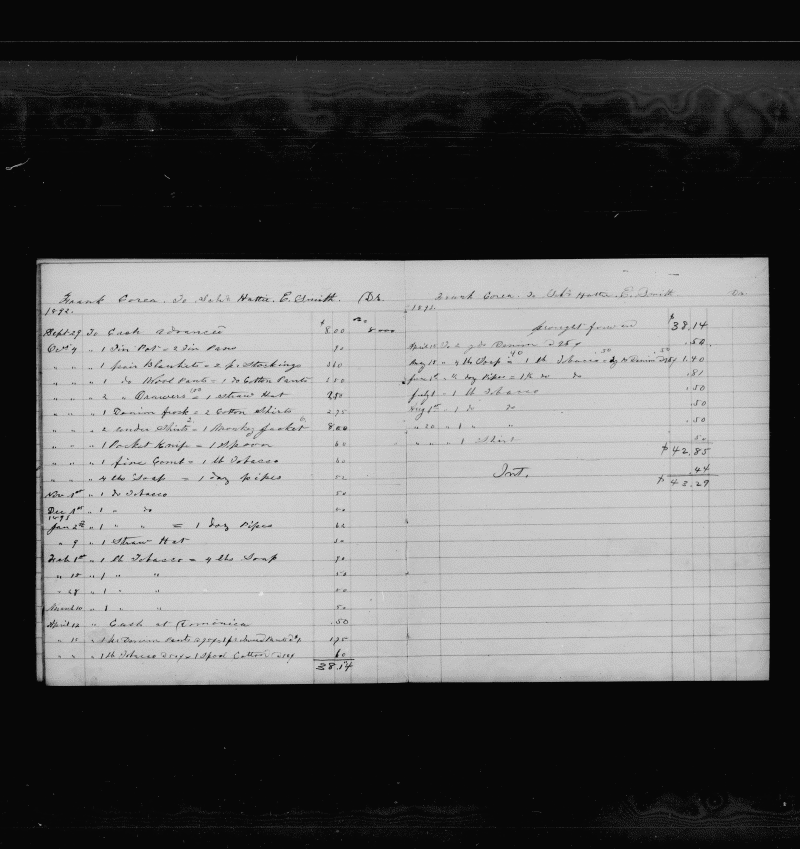 Frank Corea. To Sch'r Hattie. E. Smith. (Dr.
1892.
Sept 29 To Cash advanced $ 8.00
Oct 9 " 1 Tin Pot = 2 Tin Pans 90
" " " 1 pair Blankets = 2 p. Stockings
" " " 1 do Wool Pants = 1 do Cotton Pants
" " " 2 " Drawers = 1 Straw Hat 250
" " " 1 Denim frock = 2 Cotton Shirts 275
" " " 2 under Shirts = 1 Monkey jacket 800
" " " 1 Pocket Knife = 1 Spoon 60
" " " 1 fine Comb = 1 lb Tobacco 60
" " " 4 lbs Soap = 1 doz pipes
Nov 1st " 1 lb Tobacco 50
Dec 1st " 1 " do 50
1893
Jan 2nd " 1 " " = 1 doz Pipes 62
" 9 " 1 Straw Hat 50
Feb 1st " 1 lb Tobacco = 4 lbs Soap 90
" 15 " 1 " " 50
" 28 " 1 " " 50
March 10 " 1 " " 50
April 12 " Cash at Dominica .50
" 15 " 1 pr Denim Pants 175
" " " 1 lb Tobacco = 1 Spool Cotton 60
38.14
Frank Corea. To Sch'r Hattie. E. Smith Dr.
1893.
brought forward $ 38.14
April 15 To 2 yds Denim 25¢ .50
May 18 " 4 lb Soap = 1 lb Tobacco = Denim 1.40
June 1st " doz Pipes = 1 lb do do .81
July 1 " 1 lb Tobacco .50
Aug 1st " 1 do do .50
" 20 " 1 " " .50
" " " 1 Shirt 50
$ 42.85
Int. .44
$ 43.29